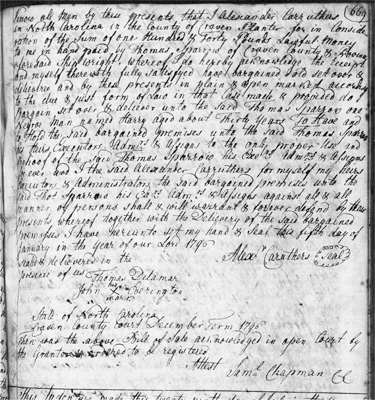 669
Know all men by these presents, that I Alexander Carruthers
in North Carolina in the County of Craven Planter for in Consid
eration of the Sum of one Hundred & Forty Eight Lawful Money
to me in hand paid by Thomas Sparrow of Craven County & Province
aforesaid Ship wright, whereof I do hereby acknowledge the receipt
and myself therewith fully satisfied have bargained Sold set over &
Delivered and by these presents in plain & open market according
to the due & just form of Law in that Case made & provided do
Bargain set over & deliver unto the said Thomas Sparrow one
Negroe Man named Harry aged about Thirty Years To Have and
to Hold the said bargained premises unto the said Thomas Sparrow
his Executors Admrs & Assigns to the only proper Use and
behoof of the said Thomas Sparrow his Exrs Admrs & Assigns
for ever and I the said Alexander Carruthers for myself my heirs
Executors & Administrators the said bargained premises unto the
said Thos Sparrow his Exrs Admrs & Assigns against all & all
manner of persons shall & will warrant & forever defend by these
presents whereof together with the Delivery of the said bargained
premises I have hereunto set my hand & Seal this fifth day of
January in the Year of our Lord 1796
Sealed & delivered in the Alexr Caruthers Seal
presence of us
Thomas Delamar
John
his
mark
State of North Carolina
Craven County Court December Term 1796
Then was the above Bill of Sale acknowledged in open Court by
the Grantor & ordered to be registered
Attest Saml Chapman CC
This Indenture made this